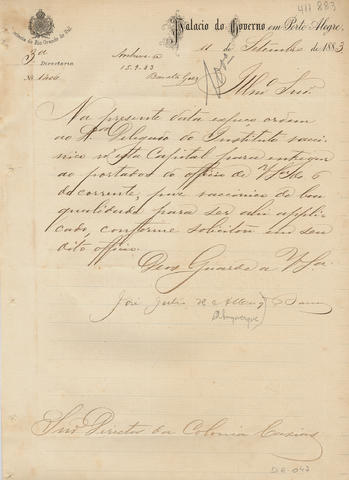 411 883
Palacio do Governo em Porto Alegre,
Provincia do Rio Grande do Sul
11 de Setembro de 1883
3ª
Directoria
Nº 1400
Archive-se
15.9.83
Illmo Snr.
Na presente data expeço ordem
ao Snr Delegado do Instituto vacci-
nico n'esta Capital para entregar
ao portador do officio de VSª de 6
do corrente, puz vaccinico de boa
qualidade para ser ahi appli-
cado, conforme solicitou em seu
dito officio.
Deus Guarde a VSa.
José Julio de Albuq. Barros
(Albuquerque)
Snr Director da Colonia Caxias
DE-047